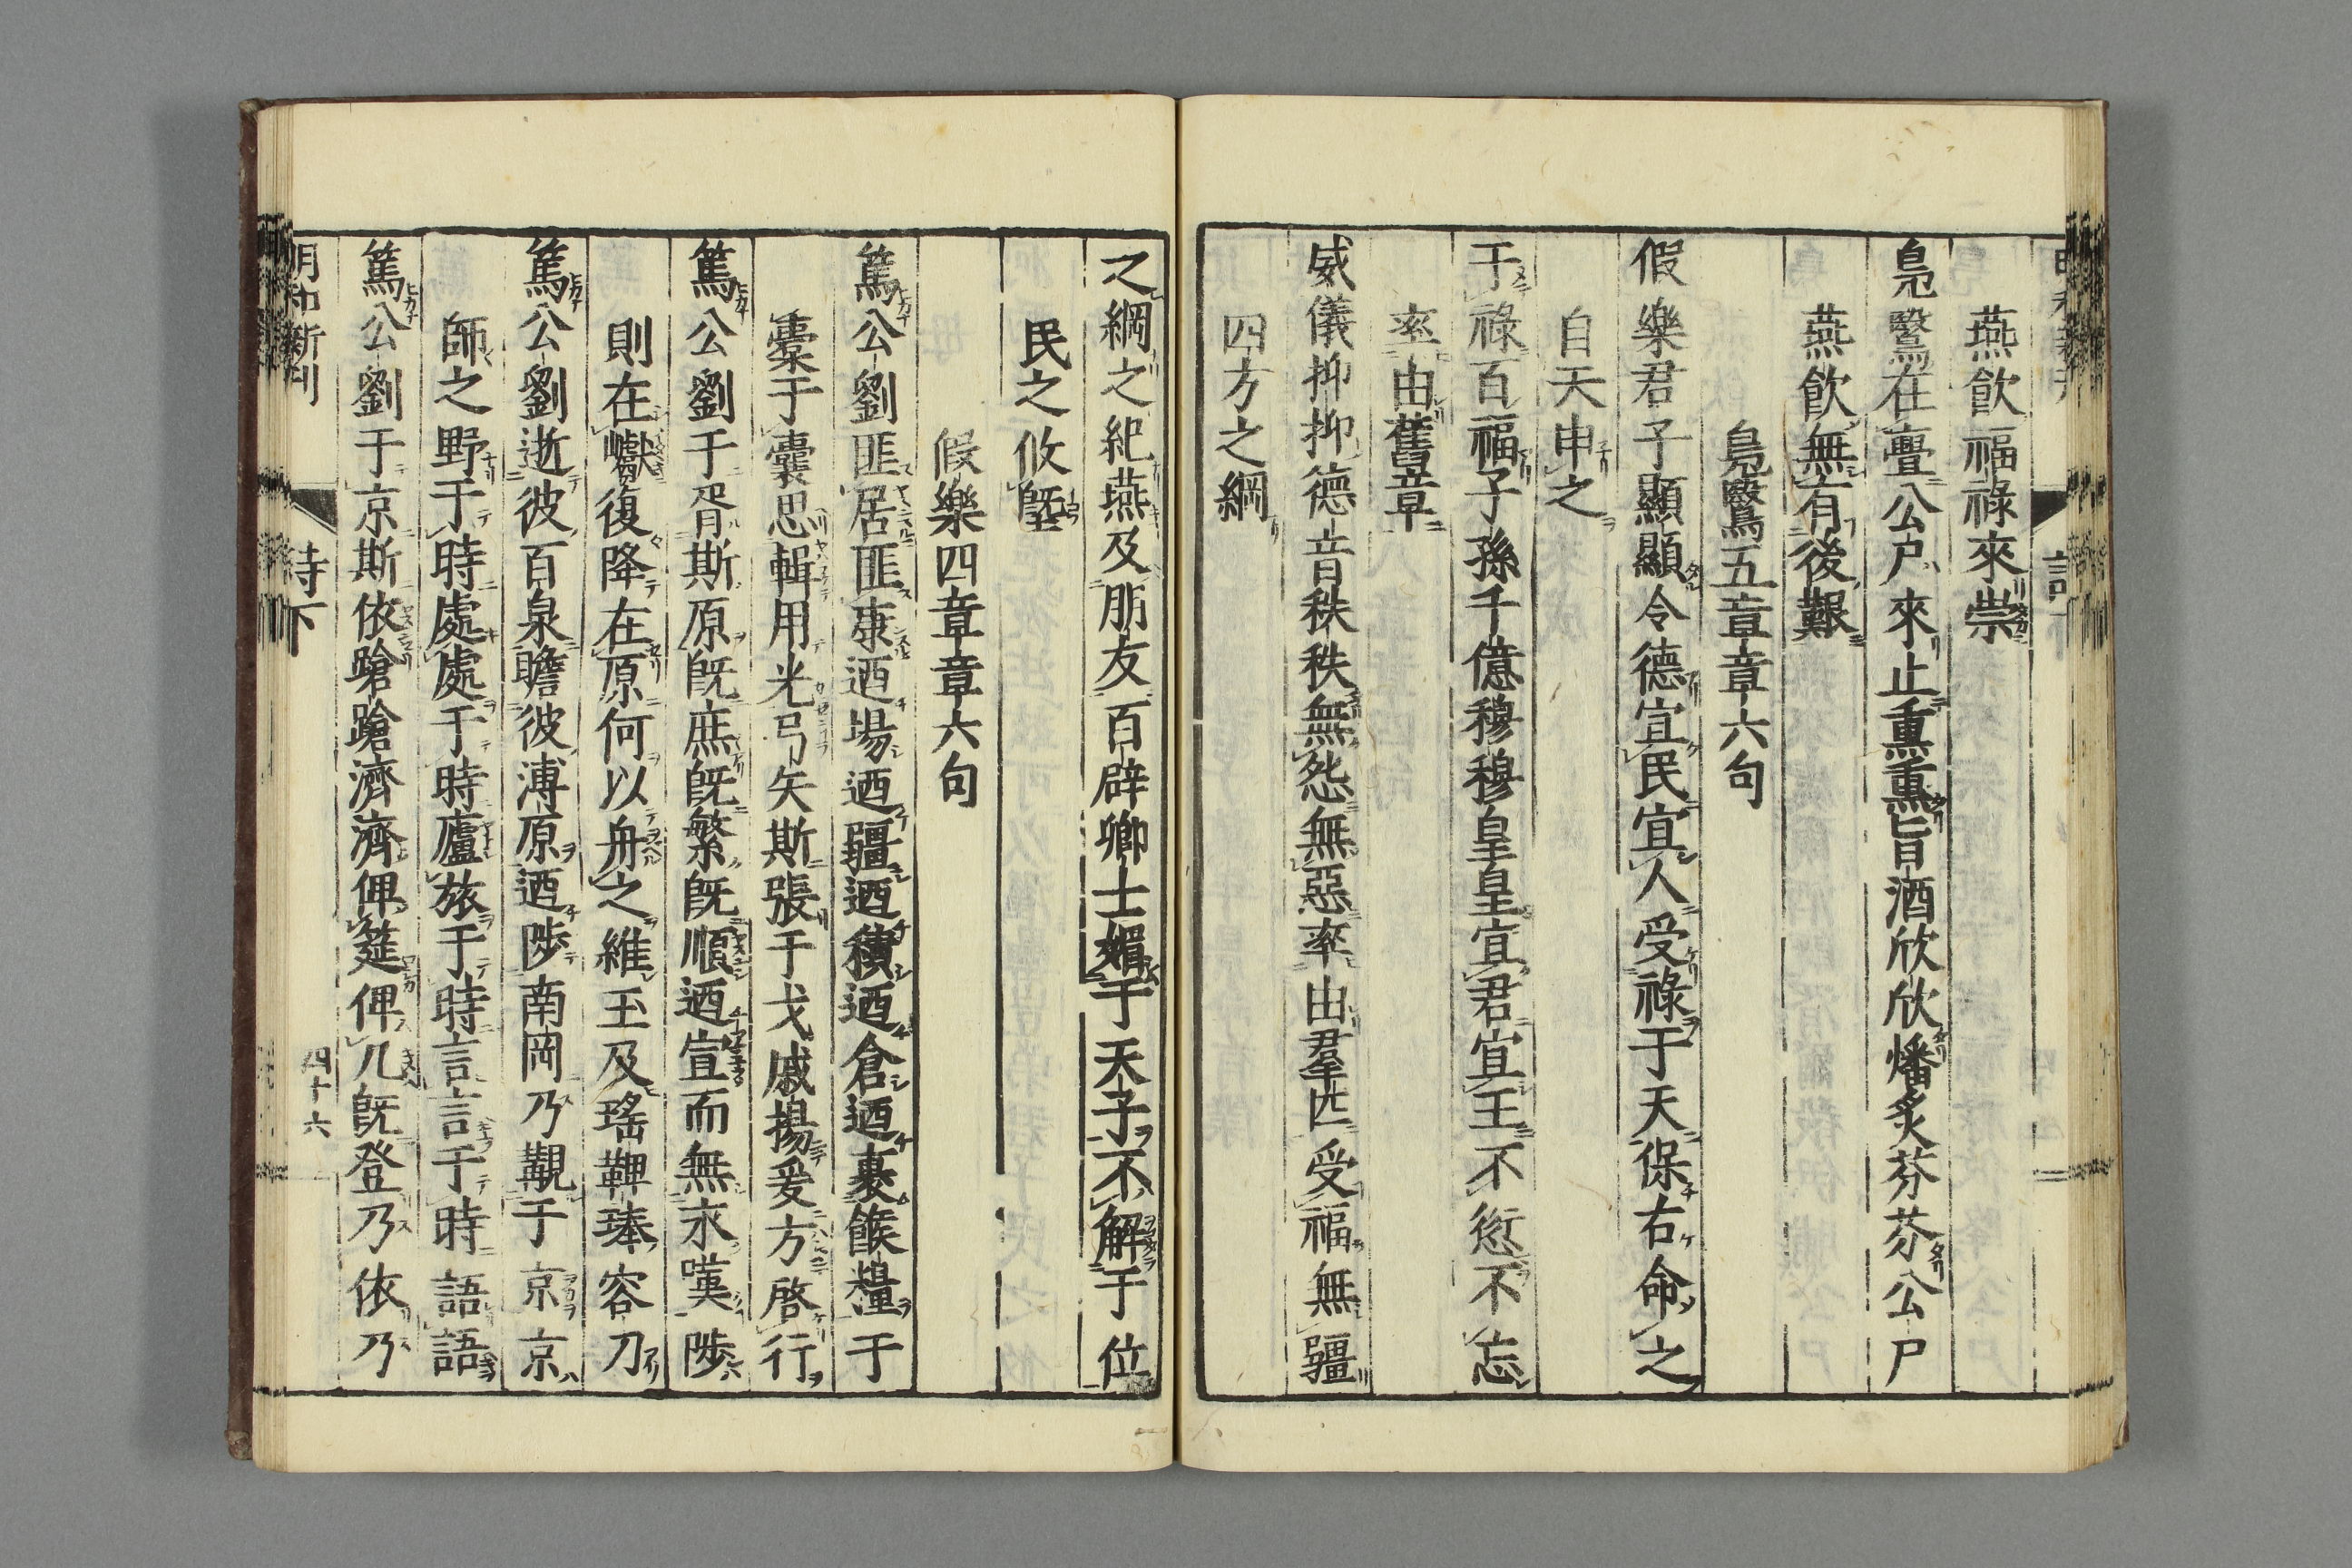 燕飮福祿來崇
鳧鷖在亹公尸來止熏熏旨酒欣欣燔炙芬芬公尸
燕飮無有後艱
鳧鷖五章章六句
假樂君子顯顯令德宜民宜人受祿于天保右命之
自天申之
干祿百福子孫千億穆穆皇皇宜君宜王不愆不忘
率由舊章
威儀抑抑德音秩秩無怨無惡率由羣匹受福無疆
四方之綱
之綱之紀燕及朋友百辟卿士媚于天子不解于位
民之攸墍
假樂四章章六句
篤公劉匪居匪康迺場迺疆迺積迺倉迺裹餱糧于
橐于囊思輯用光弓矢斯張干戈戚揚爰方啓行
篤公劉于胥斯原旣庶旣繁旣順迺宣而無永嘆陟
則在巘復降在原何以舟之維玉及瑤鞞琫容刀
篤公劉逝彼百泉瞻彼溥原迺陟南岡乃覯于京京
師之野于時處處于時廬旅于時言言于時語語
篤公劉于京斯依蹌蹌濟濟俾筵俾几旣登乃依乃
明和新刊
詩下
四十六